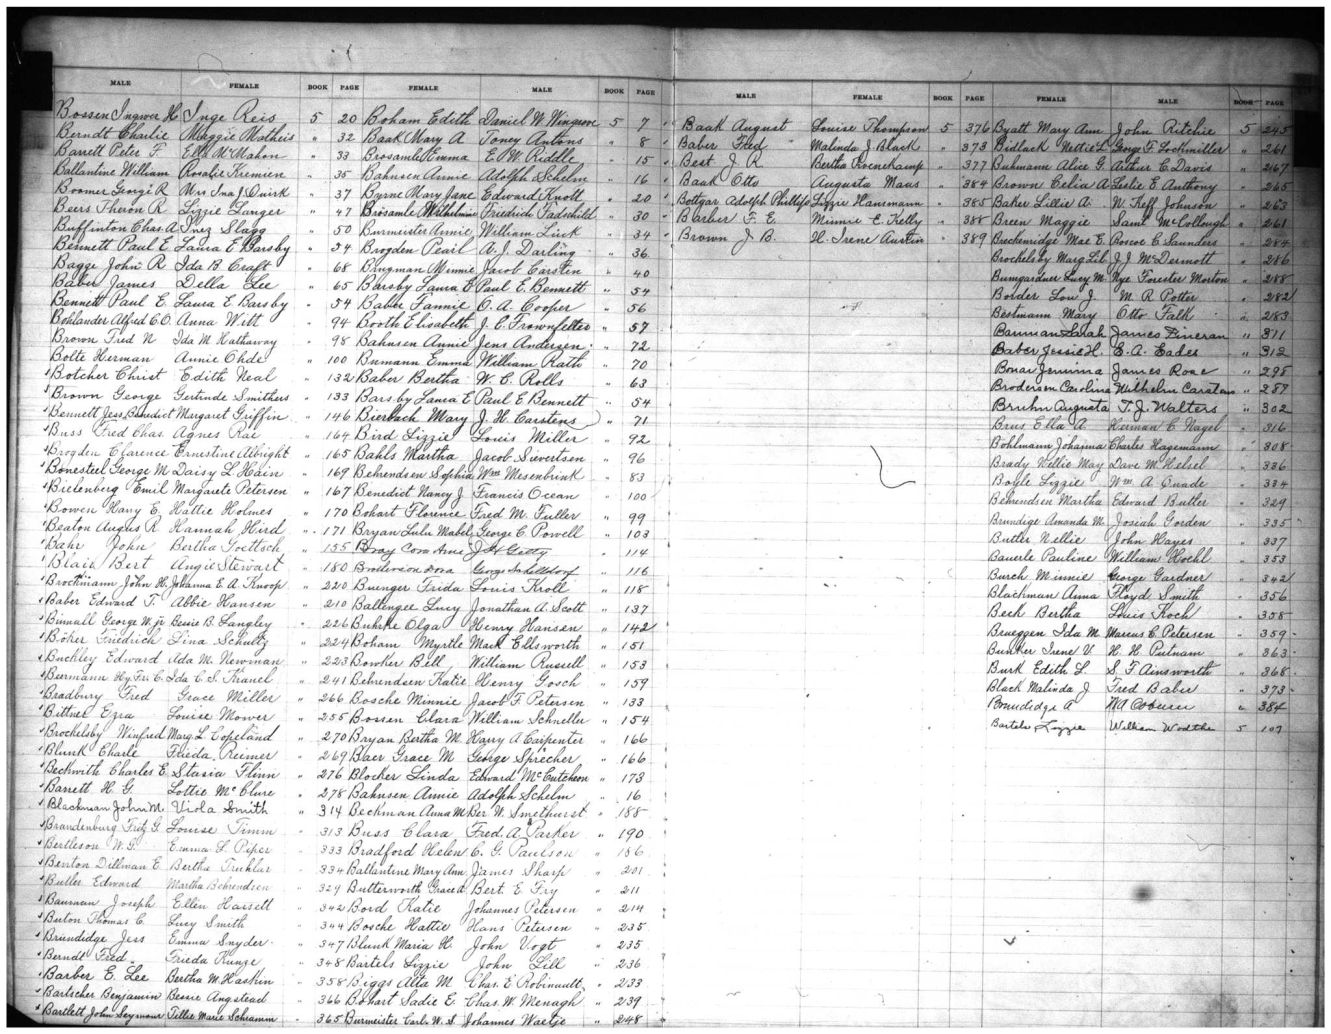 MALE FEMALE BOOK PAGE FEMALE MALE BOOK PAGE MALE FEMALE BOOK PAGE FEMALE MALE BOOK PAGE
Bossen Ingwer H Inge Reis 5 20
Berndt Charlie Maggie Matheis " 32
Barrett Peter F. Ella McMahon " 33
Ballantine William Rosalie Kremien " 35
Boomer George R Mrs Ina J. Quirk " 37
Beers Theron R Lizzie Langer " 47
Buffinton Chas. A Inez Slagg " 50
Bennett Paul E Laura E Barsby " 54
Bagge John R Ida B Craft " 68
Baber James Della Lee " 65
Bennett Paul E. Laura E. Barsby " 54
Bohlander Alfred C.O. Anna Witt " 94
Brown Fred N Ida M Hathaway " 98
Bolte Herman Annie Ohde " 100
Botcher Christ Edith Neal " 132
Brown George Gertrude Smithers " 133
Bennett Jess Benedict Margaret Griffin " 146
Buss Fred Chas. Agnes Rae " 164
Brogden Clarence Ernestine Albright " 165
Bonesteel George M Daisy L Hain " 169
Bielenberg Emil Margarete Petersen " 167
Bowen Harry E. Hattie Holmes " 170
Beaton Angus R Hannah Hird " 171
Bahr John Bertha Soettsch " 155
Blair Bert Angie Stewart " 180
Brockmann John H. Johanna E. A. Knoop " 220
Baber Edward T. Abbie Hansen " 210
Binnall George W. jr Bessie B. Langley " 226
Böker Friedrich Lina Schultz " 224
Buckley Edward Ada M. Newman " 223
Bermann Hy. Fr. C. Ida C. S. Kranel " 241
Bradbury Fred Grace Miller " 266
Bittner Ezra Louise Mower " 255
Brockelsby Winfred Marg. L Copeland " 270
Blunk Charle Frieda Reimer " 269
Beckwith Charles E Stasia Flinn " 276
Barrett H. G. Lottie McClure " 278
Blackman John M. Viola Smith " 314
Brandenburg Fritz G. Louise Timm " 313
Bertleson W. G. Emma F. Piper " 333
Benton Dillman E Bertha " 334
Butler Edward Martha Behrendsen " 329
Bauman Joseph Ellen Harsett " 342
Buton Thomas C. Lucy Smith " 344
Brundidge Jess Emma Snyder " 347
Berndt Fred. Frieda Kunze " 348
Barber E. Lee Bertha M. Haskin " 358
Bartscher Benjamin Bessie Angstead " 366
Bartlett John Seymour Tillie Marie Schramm " 365
Boham Edith Daniel W. Wingrove 5 7
Baak Mary A Toney Antons " 8
Brosamle Emma E. W. Riddle " 15
Bahnsen Annie Adolph Schelm " 16
Byrne Mary Jane Edward Knott " 20
Brosamle Wilhelmine Friedrich Padschild " 30
Burmeister Annie William Link " 34
Brogden Pearl A. J. Darling " 36
Brugman Minnie Jacob Carsten " 40
Barsby Laura E Paul E. Bennett " 54
Baber Fannie O. A. Cooper " 56
Booth Elisabeth J. C. Frownfelter " 57
Bahnsen Annie Jens Andersen " 72
Bumann Emma William Rath " 70
Baber Bertha W. C. Rolls " 63
Barsby Laura E Paul E Bennett " 54
Bierbach Mary J. H. Carstens " 71
Bird Lizzie Louis Miller " 92
Bahls Martha Jacob Sievertsen " 96
Behrendsen Sophia Wm Mesenbrink " 83
Benedict Nancy J Francis Ocean " 100
Bohart Florence Fred M. Fuller " 99
Bryan Lulu Mabel George C. Powell " 103
Bray Cora Amie J H Getty " 114
Brodersen Dora George Schellstorf " 116
Buenger Frida Louis Kroll " 118
Ballengee Lucy Jonathan A. Scott " 137
Buhrke Olga Henry Hansen " 142
Boham Myrtle Mack Ellsworth " 151
Bowker Bell William Russell " 153
Behrendsen Katie Henry Gosch " 159
Bosche Minnie Jacob F. Petersen " 133
Bossen Clara William Schnelle " 154
Bryan Bertha M. Harry A Carpenter " 166
Blaer Grace M George Sprecher " 166
Blocker Linda Edward McCutcheon " 173
Bahnsen Annie Adolph Schelm " 16
Beckman Anna M Ber. W. Smethurst " 188
Buss Clara Fred. A. Parker " 190
Bradford Helen C. G. Paulson " 186
Ballantine Mary Ann James Sharp " 201
Butterworth Grace A Bert. E Fry " 211
Bord Katie Johannes Petersen " 214
Bosche Hattie Hans Petersen " 235
Blunk Maria H. John Vogt " 235
Bartels Lizzie John Lill " 236
Biggs Alta M Chas. E Robinautt " 233
Bohart Sadie E Chas. W. Menagh " 239
Burmeister Carl. W. S Johannes Waetje " 248
Baak August Louise Thompson 5 376
Baber Fred Malinda J Black " 373
Best J R Bertha Roenchamp " 377
Baak Otto Augusta Maas " 384
Bottgar Adolph Phillip Lizzie Hansmann " 385
Barber F. E. Minnie E. Kelly " 388
Brown J B. H. Irene Austin " 389
Byatt Mary Ann John Ritchie 5 245
Bidlack Nettie L George F. Lochmiller " 261
Buhmann Alice G Arthur C Davis " 267
Brown Celia A Leslie E Anthony " 265
Baker Lillie A N. Neff Johnson " 263
Breen Maggie Saml McCollough " 261
Breckenridge Mae E. Roscoe C. Saunders " 284
Brockelsby Marg. Lil J. J. McDermott " 286
Bumgardner Lucy M Nye Forester Morton " 288
Border Lou J M. R Potter " 282
Bestmann Mary Otto Falk " 283
Bauman Sarah James Fineran " 311
Baber Jessie H. E. A. Eades " 312
Bonar Jemima James Rose " 298
Brodersen Carolina Wilhelm Carstens " 287
Bruhn Augusta T. J. Walters " 302
Brus Ella A Herman C Nagel " 316
Böhlmann Johanna Charles Hagemann " 308
Brady Nellie May Dave M Helsel " 326
Boyle Lizzie Wm. A Quade " 334
Behrendsen Martha Edward Butler " 329
Brundige Amanda M. Josiah Gorden " 335
Butler Nellie John Hayes " 337
Bauerle Pauline William Hoehl " 353
Burch Minnie George Gardner " 342
Blackman Anna Floyd Smith " 356
Beck Bertha Louis Koch " 358
Brueggen Ida M Marcus C Petersen " 359
Bunker Irene V H. H Putnam " 363
Burk Edith L. S. F. Ainsworth " 368
Black Malinda J Fred Baber " 373
Brundidge A " 384
Bartels Lizzie William Wodther 5 107